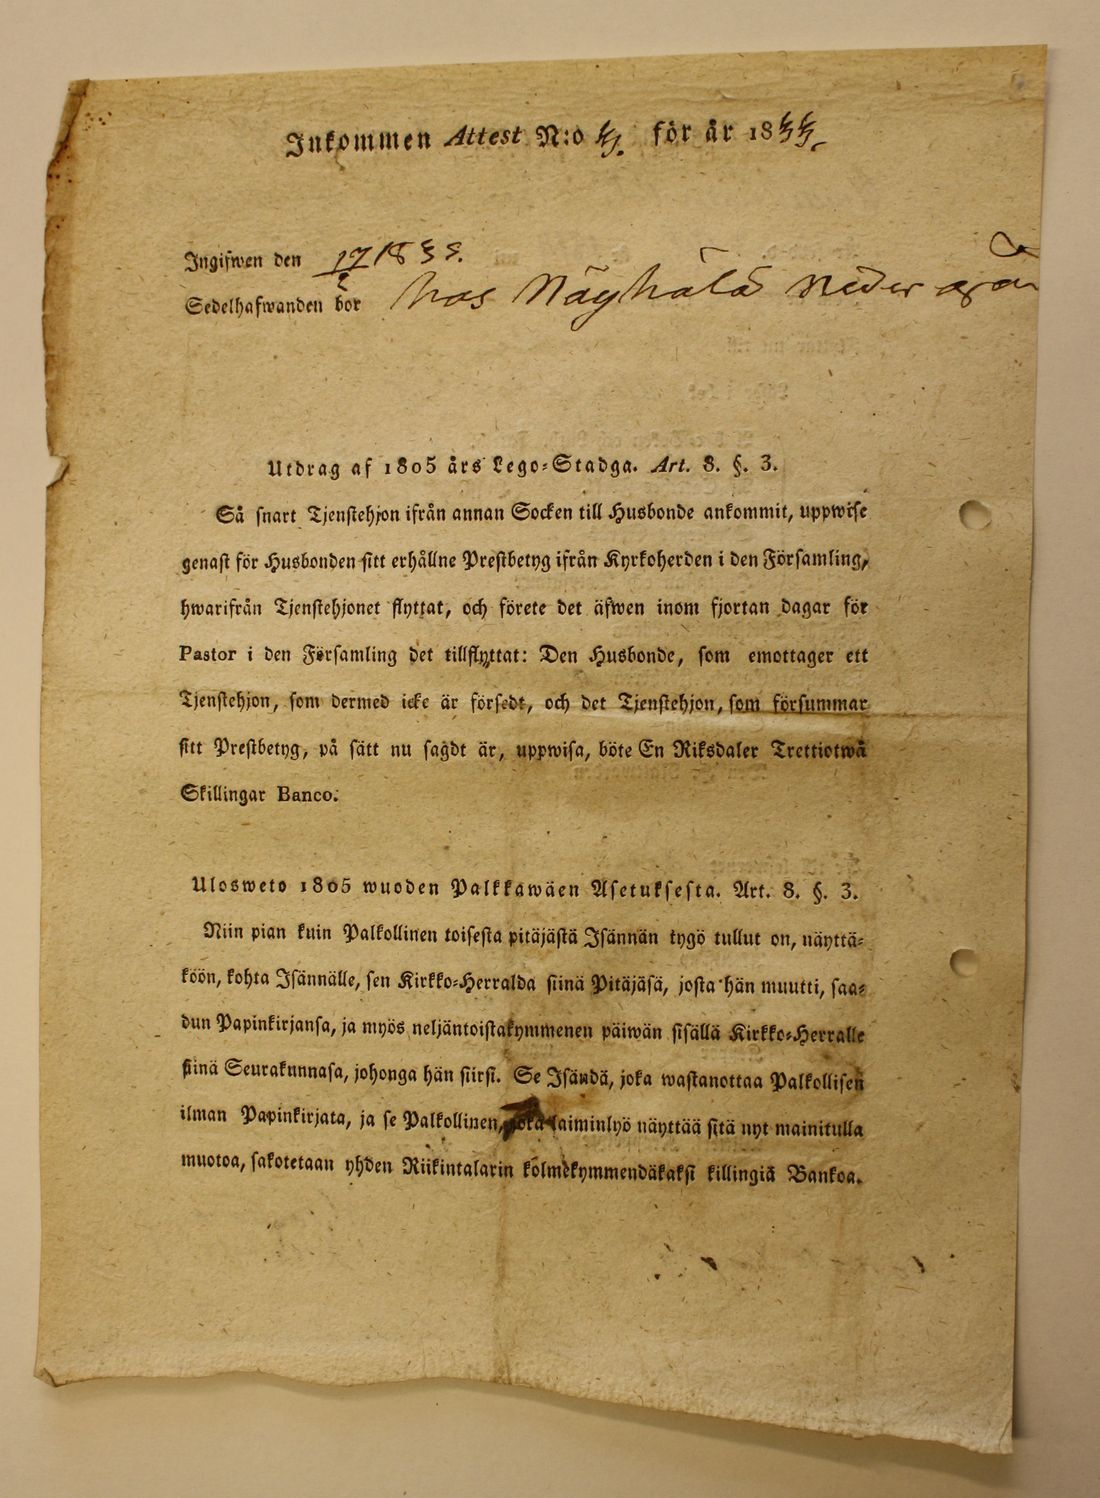 Inkommen Attest N:o för år 18
Ingifwen den 17 18
Sedelhafwanden bor hos
Utdrag af 1805 års Lego-Stadga. Art. 8. §. 3.
Så snart Tjenstehjon ifrån annan Socken till Husbonde ankommit, uppwise
genast för Husbonden sitt erhållne Prestbetyg ifrån Kyrkoherden i den Församling,
hwarifrån Tjenstehjonet flyttat, och förete det äfwen inom fjortan dagar för
Pastor i den Församling det tillflyttat: Den Husbonde, som emottager ett
Tjenstehjon, som dermed icke är försedt, och det Tjenstehjon, som försummar
sitt Prestbetyg, på sätt nu sagdt är, uppwisa, böte En Riksdaler Trettiotwå
Skillingar Banco.
Ulosweto 1805 wuoden Palkkawäen Asetuksesta. Art. 8. §. 3.
Niin pian kuin Palkollinen toisesta pitäjästä Isännän tygö tullut on, näyttä-
köön, kohta Isännälle, sen Kirkko-Herralda siinä Pitäjäsä, josta hän muutti, saa-
dun Papinkirjansa, ja myös neljäntoistakymmenen päiwän sisällä Kirkko-Herralle
siinä Seurakunnasa, johonga hän siirsi. Se Isändä, joka wastanottaa Palkollisen
ilman Papinkirjata, ja se Palkollinen, joka laiminlyö näyttää sitä nyt mainitulla
muotoa, sakotetaan yhden Riikintalarin kolmekymmendäkaksi killingiä Bankoa.